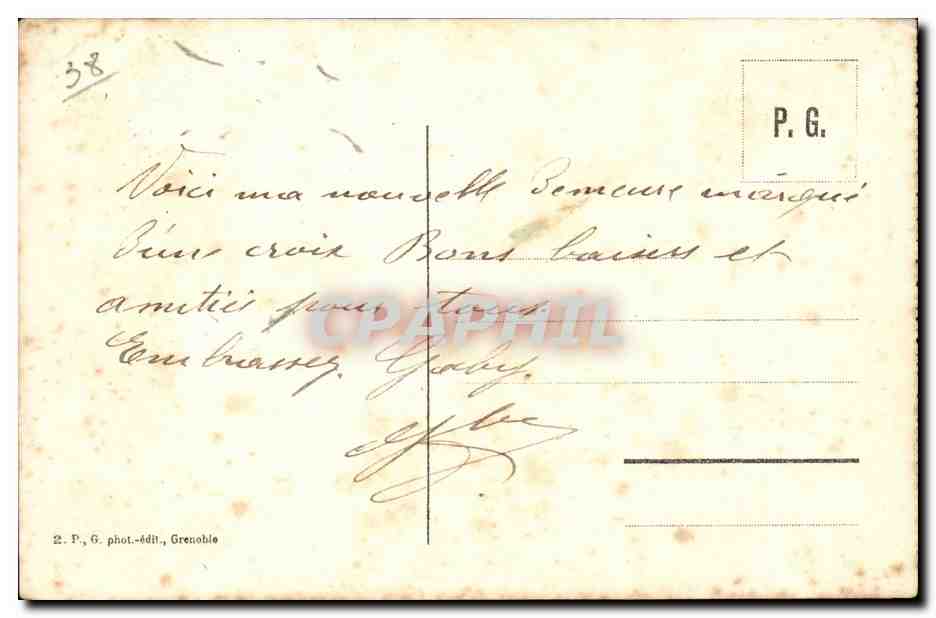 38
P. G.
Voici ma nouvelle demeure marqué
d'une croix Bons baisers et
amitiés pour tous
Embrassez Gaby.
2. P., G. phot.-édit., Grenoble
CPAPHIL